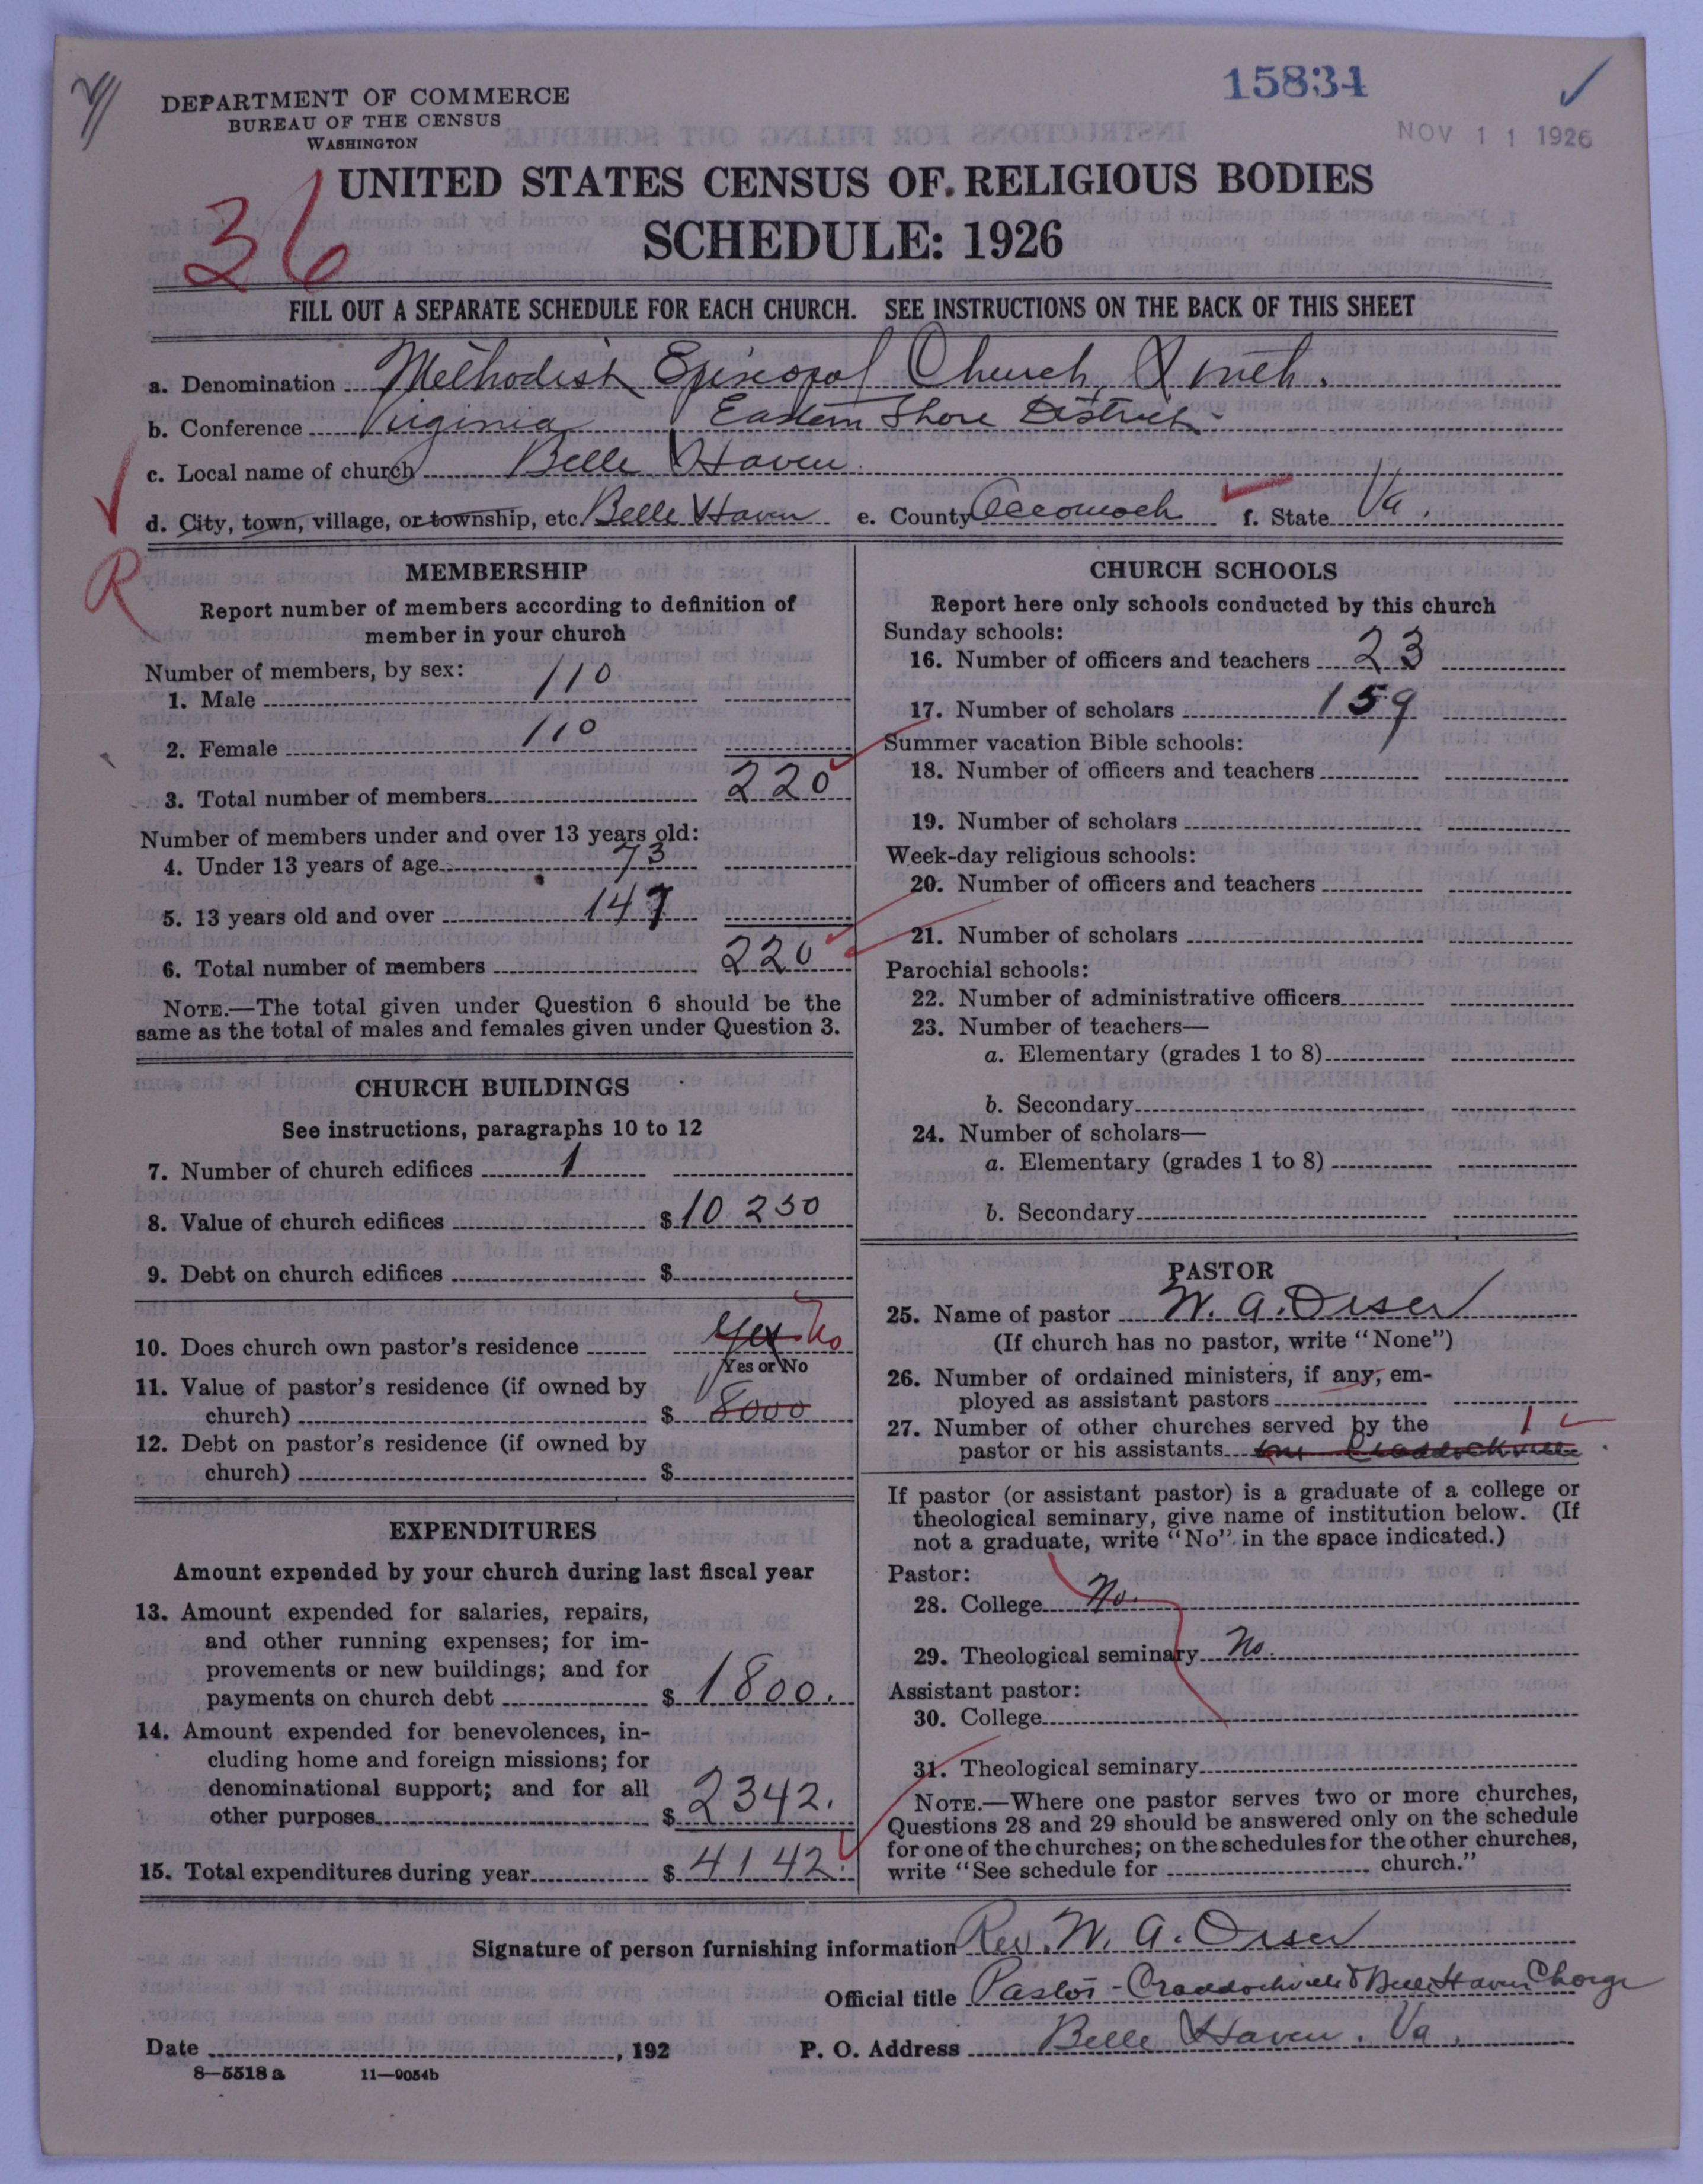 15834
NOV 11 1926
DEPARTMENT OF COMMERCE
BUREAU OF THE CENSUS
WASHINGTON
UNITED STATES CENSUS OF RELIGIOUS BODIES
36
SCHEDULE: 1926
FILL OUT A SEPARATE SCHEDULE FOR EACH CHURCH. SEE INSTRUCTIONS ON THE BACK OF THIS SHEET
a. Denomination Methodist Episcopal Church, South.
b. Conference Virginia Eastern Shore District
c. Local name of church Belle Haven
d. City, town, village, or township, etc. Belle Haven e. County Accomack f. State Va.
R
MEMBERSHIP
Report number of members according to definition of
member in your church
Number of members, by sex:
1. Male 110
2. Female 110
3. Total number of members 220
Number of members under and over 13 years old:
4. Under 13 years of age 73
5. 13 years old and over 147
6. Total number of members 220
NOTE.—The total given under Question 6 should be the
same as the total of males and females given under Question 3.
CHURCH BUILDINGS
See instructions, paragraphs 10 to 12
7. Number of church edifices 1
8. Value of church edifices $10 250
9. Debt on church edifices $
10. Does church own pastor's residence Yes No
Yes or No
11. Value of pastor's residence (if owned by
church) $ 8000
12. Debt on pastor's residence (if owned by
church) $
EXPENDITURES
Amount expended by your church during last fiscal year
13. Amount expended for salaries, repairs,
and other running expenses; for im-
provements or new buildings; and for
payments on church debt $ 1800.
14. Amount expended for benevolences, in-
cluding home and foreign missions; for
denominational support; and for all
other purposes $ 2342.
15. Total expenditures during year $ 4142.
CHURCH SCHOOLS
Report here only schools conducted by this church
Sunday schools:
16. Number of officers and teachers 23
17. Number of scholars 159
Summer vacation Bible schools:
18. Number of officers and teachers
19. Number of scholars
Week-day religious schools:
20. Number of officers and teachers
21. Number of scholars
Parochial schools:
22. Number of administrative officers
23. Number of teachers—
a. Elementary (grades 1 to 8)
b. Secondary
24. Number of scholars—
a. Elementary (grades 1 to 8)
b. Secondary
PASTOR
25. Name of pastor W. A. Orser
(If church has no pastor, write "None")
26. Number of ordained ministers, if any, em-
ployed as assistant pastors
27. Number of other churches served by the 1
pastor or his assistants Craddockville
If pastor (or assistant pastor) is a graduate of a college or
theological seminary, give name of institution below. (If
not a graduate, write "No" in the space indicated.)
Pastor:
28. College No.
29. Theological seminary No.
Assistant pastor:
30. College
31. Theological seminary
NOTE.—Where one pastor serves two or more churches,
Questions 28 and 29 should be answered only on the schedule
for one of the churches; on the schedules for the other churches,
write "See schedule for church."
Signature of person furnishing information Rev. W. A. Orser
Official title Pastor - Craddockville & Belle Haven Charge
Date , 192 P. O. Address Belle Haven. Va.
8—5518 a 11—9054b